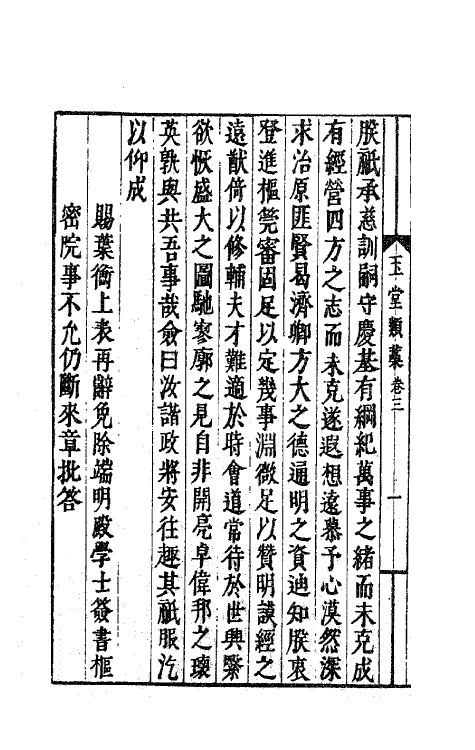 玉堂類藁 卷三 一
朕祗承慈訓嗣守慶基有綱紀萬事之緒而未克成
有經營四方之志而未克遂遐想遠慕予心漠然深
求治原匪賢曷濟卿方大之德通明之資迪知朕衷
登進樞筦審固足以定幾事淵微足以贊明謨經之
遠猷倚以修輔夫才難適於時會道常待於世興緊
欲恢盛大之圖馳寥廓之見自非開亮卓偉邦之瓌
英孰與共吾事哉僉曰汝諧政將安往趣其祗服汔
以仰成
賜葉衡上表再辭免除端明殿學士簽書樞
密院事不允仍斷來章批答